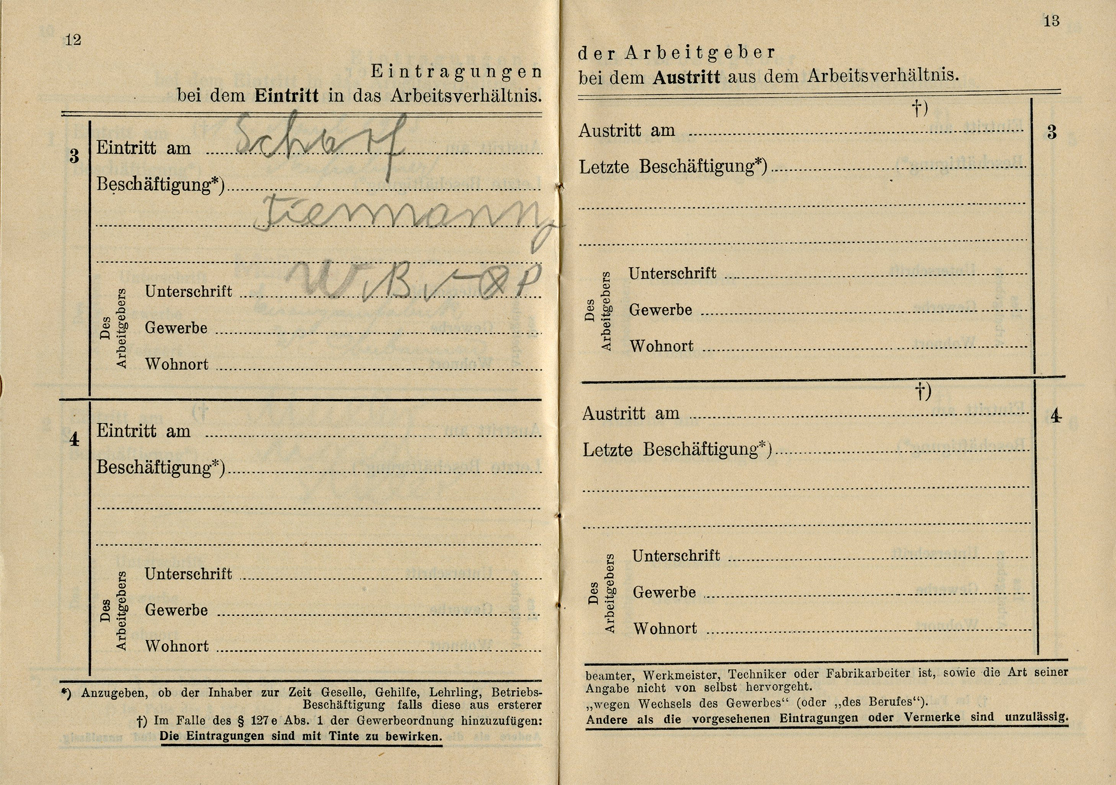 12
Eintragungen
bei dem Eintritt in das Arbeitsverhältnis.
3
Eintritt am Scharf
Beschäftigung*)
Tiermann
Des Arbeitgebers
Unterschrift W, B, P
Gewerbe
Wohnort
4
Eintritt am
Beschäftigung*)
Des Arbeitgebers
Unterschrift
Gewerbe
Wohnort
*) Anzugeben, ob der Inhaber zur Zeit Geselle, Gehilfe, Lehrling, Betriebs-
Beschäftigung falls diese aus ersterer
†) Im Falle des § 127e Abs. 1 der Gewerbeordnung hinzuzufügen:
Die Eintragungen sind mit Tinte zu bewirken.
13
der Arbeitgeber
bei dem Austritt aus dem Arbeitsverhältnis.
†)
Austritt am
3
Letzte Beschäftigung*)
Des Arbeitgebers
Unterschrift
Gewerbe
Wohnort
†)
Austritt am
4
Letzte Beschäftigung*)
Des Arbeitgebers
Unterschrift
Gewerbe
Wohnort
beamter, Werkmeister, Techniker oder Fabrikarbeiter ist, sowie die Art seiner
Angabe nicht von selbst hervorgeht.
„wegen Wechsels des Gewerbes“ (oder „des Berufes“).
Andere als die vorgesehenen Eintragungen oder Vermerke sind unzulässig.